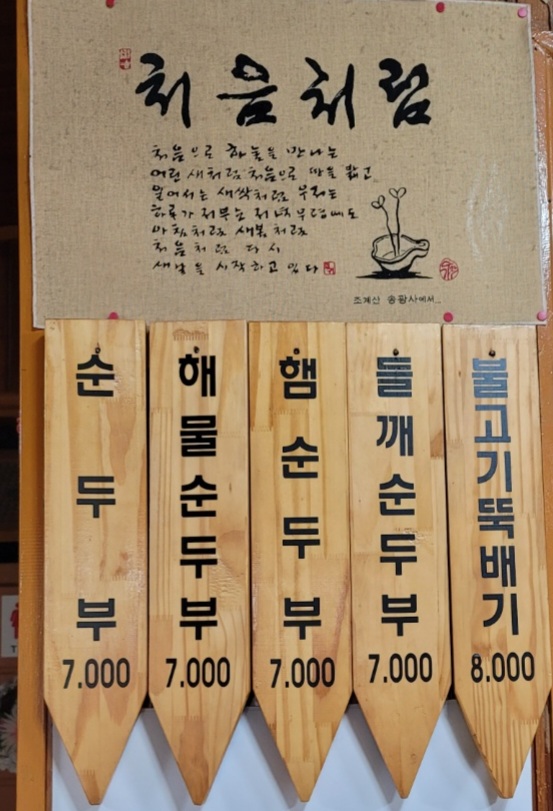 처음처럼
처음으로 하늘을 만나는
어린 새처럼 처음으로 땅을 밟고
일어서는 새싹처럼 우리는
하루가 저무는 저녁무렵에도
아침처럼 새봄처럼
처음처럼 다시
새날을 시작하고 있다
조계산 송광사에서...
순두부
7.000
해물순두부
7.000
햄순두부
7.000
들깨순두부
7.000
불고기뚝배기
8.000